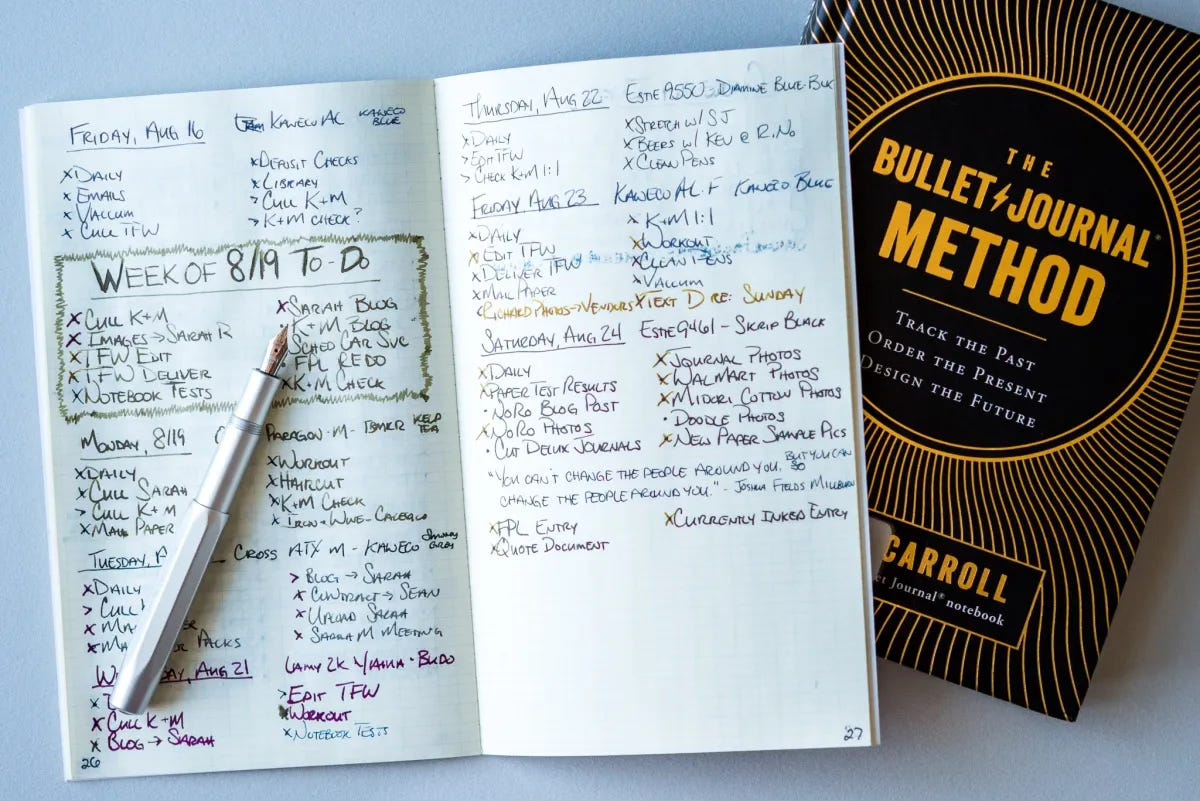 FRIDAY, AUG 16 KAWECO AL KAWECO BLUE
x DAILY
x EMAILS
x VACUUM
x CULL TFW
x DEPOSIT CHECKS
x LIBRARY
> CULL K+M
> K+M CHECK?
WEEK OF 8/19 TO-DO
x CULL K+M
x IMAGES → SARAH R
x TFW EDIT
x TFW DELIVER
x NOTEBOOK TESTS
x SARAH BLOG
K+M BLOG
SCHED CAR SVC
FPL REDO
x K+M CHECK
MONDAY, 8/19 PARAGON - M - KELP TEA
x DAILY
x CULL SARAH
> CULL K+M
x MAIL PAPER
x WORKOUT
x HAIRCUT
x K+M CHECK
x IRON + WINE -
TUESDAY, CROSS ATX M - KAWECO SMOKEY GREY
x DAILY
> CULL
x PACKS
> BLOG → SARAH
x CONTRACT → SEAN
x UPLOAD SARAH
x SARAH M MEETING
AUG 21 LAMY 2K
x CULL K+M
x BLOG → SARAH
> EDIT TFW
x WORKOUT
x NOTEBOOK TESTS
26
THURSDAY, AUG 22 ESTIE 9550 DIAMINE BLUE-BLK
x DAILY
> EDIT TFW
> CHECK K+M 1:1
x STRETCH W/ SJ
x BEERS W/ KEV @ R.NO
x CLEAN PENS
FRIDAY, AUG 23 KAWECO AL - F KAWECO BLUE
x DAILY
x EDIT TFW
x DELIVER TFW
x MAIL PAPER
x K+M 1:1
x WORKOUT
x CLEAN PENS
x VACUUM
RICHARD PHOTOS → VENDORS x TEXT D RE: SUNDAY
SATURDAY, AUG 24 ESTIE 9461 - SKRIP BLACK
x DAILY
x PAPER TEST RESULTS
· NORO BLOG POST
x NORO PHOTOS
· CUT DELUX JOURNALS
x JOURNAL PHOTOS
x WALMART PHOTOS
x MIDORI COTTON PHOTOS
· DOODLE PHOTOS
x NEW PAPER SAMPLE PICS
"YOU CAN'T CHANGE THE PEOPLE AROUND YOU, BUT YOU CAN
CHANGE THE PEOPLE AROUND YOU." - JOSHUA FIELDS MILLBURN
x FPL ENTRY
x QUOTE DOCUMENT
x CURRENTLY INKED ENTRY
27
THE
BULLET JOURNAL®
METHOD
TRACK THE PAST
ORDER THE PRESENT
DESIGN THE FUTURE
CARROLL
Journal® notebook